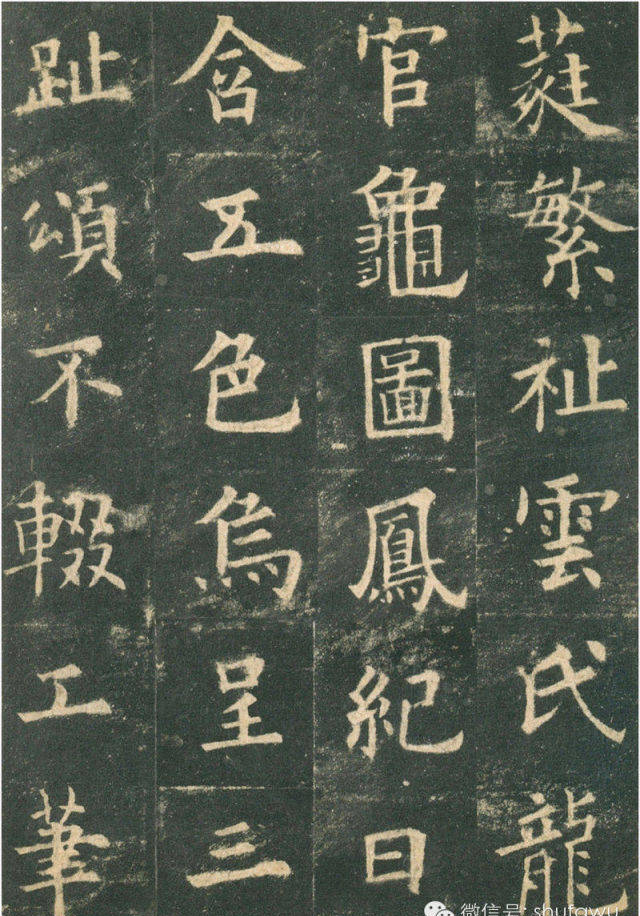 蕤繁祉雲氏龍
官龜圖鳳紀日
含五色烏呈三
趾頌不輟工筆
微信号: shufawu